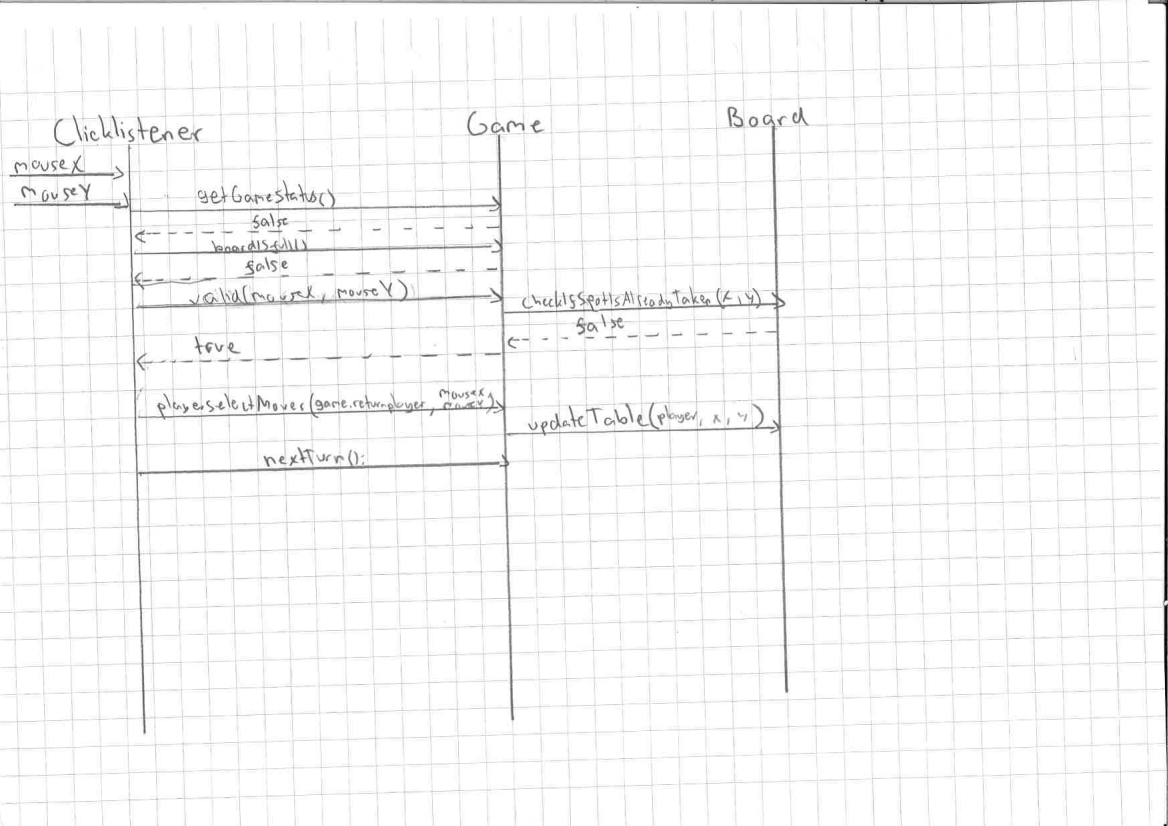 Clicklistener
Game
Board
mouseX
mouseY
getGameStatus()
false
boardIsfull()
false
vailid(mouseX, mouseY)
checkIfSpotIsAlreadyTaken(x,y)
false
true
playerSelectMover(game.returnplayer, mouseX, mouseY)
updateTable(player, x, y)
nextTurn();